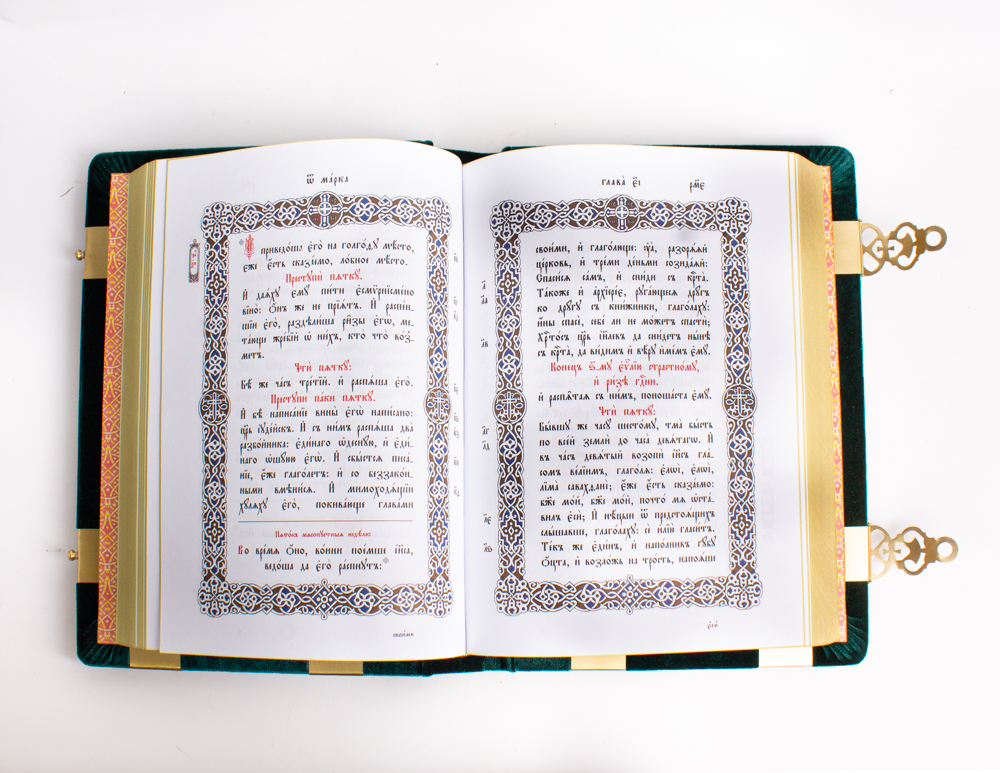 Ѿ ма́рка
И҆ приведо́ша є҆го̀ на голго́ѳꙋ мѣ́сто,
є҆́же є҆́сть сказа́емо, ло́бное мѣ́сто.
Престꙋпѝ пѧткꙋ̀.
И҆ даѧ́хꙋ є҆мꙋ̀ пи́ти є҆смѷрнісме́но
вїно̀: Ѻ҆́нъ же не прїѧ́тъ. И҆ распе́н-
шїи є҆го̀, раздѣли́ша ри̑зы є҆гѡ̀, ме-
та́юще жре́бїй ѡ҆ ни́хъ, кто̀ что̀ во́з-
метъ.
Чтѝ пѧткꙋ̀:
Бѣ́ же ча́съ тре́тїй. и҆ распѧ́ша є҆го̀.
Престꙋпѝ па́ки пѧткꙋ̀.
И҆ бѣ̀ написа́нїе вины̀ є҆гѡ̀ напи́сано:
цр҃ь і҆ꙋде́йскъ. И҆ съ ни́мъ распѧ́ша два̀
разбѡ́йника: є҆ди́наго ѡ҆деснꙋ́ю, и҆ є҆ди́-
наго ѡ҆шꙋ́юю є҆гѡ̀. И҆ сбы́стсѧ писа́-
нїе, є҆́же глаго́летъ: и҆ со беззако́н-
ными вмѣни́сѧ. И҆ мимоходѧ́щїи
хꙋ́лѧхꙋ є҆го̀, покива́юще глава́ми
Пѧто́къ мѧсопꙋ́стныѧ недѣ́ли:
Во вре́мѧ ѻ҆́но, во́ини пое́мше і҆и҃са,
ведо́ша да є҆го̀ распнꙋ́тъ:
глава̀ є҃і
рм҃є
свои́ми, и҆ глаго́люще: ᲂу҆а̀, разорѧ́ѧй
це́рковь, и҆ тремѝ де́ньми созида́ѧй:
Спаси́сѧ са́мъ, и҆ сни́ди съ крⷭ҇та̀.
Та́коже и҆ а҆рхїере́є, рꙋга́ющесѧ дрꙋ́гъ
ко дрꙋ́гꙋ съ кни́жники, глаго́лахꙋ:
и҆́ны спасѐ, себе́ ли не мо́жетъ спастѝ;
Хрⷭ҇то́съ цр҃ь і҆и҃левъ да сни́детъ нн҃ѣ
съ крⷭ҇та̀, да ви́димъ и҆ вѣ́рꙋ и҆́мемъ є҆мꙋ̀.
Коне́цъ ѕ҃-мꙋ є҆ѵⷢ҇лїю стра́стномꙋ,
и҆ ри́зѣ гдⷭ҇ни.
и҆ распѧ̑таѧ съ ни́мъ, поноша́ста є҆мꙋ̀.
Чтѝ пѧткꙋ̀:
Бы́вшꙋ же часꙋ̀ шесто́мꙋ, тма̀ бы́сть
по все́й землѝ до часа̀ девѧ́тагѡ. И҆
въ ча́съ девѧ́тый возопѝ і҆и҃съ гла́-
сомъ ве́лїимъ, глаго́лѧ: є҆лѡі̀, є҆лѡі̀,
ліма̀ савахѳанѝ; є҆́же є҆́сть сказа́емо:
бж҃е мо́й, бж҃е мо́й, почто́ мѧ ѡ҆ста́-
вилъ є҆сѝ; И҆ нѣ́цыи ѿ предстоѧ́щихъ
слы́шавше, глаго́лахꙋ: сѐ и҆лїю̀ гласи́тъ.
Те́къ же є҆ди́нъ, и҆ напо́лнивъ гꙋ́бꙋ
ѻ҆́цта, и҆ возло́жь на тро́сть, напаѧ́ше